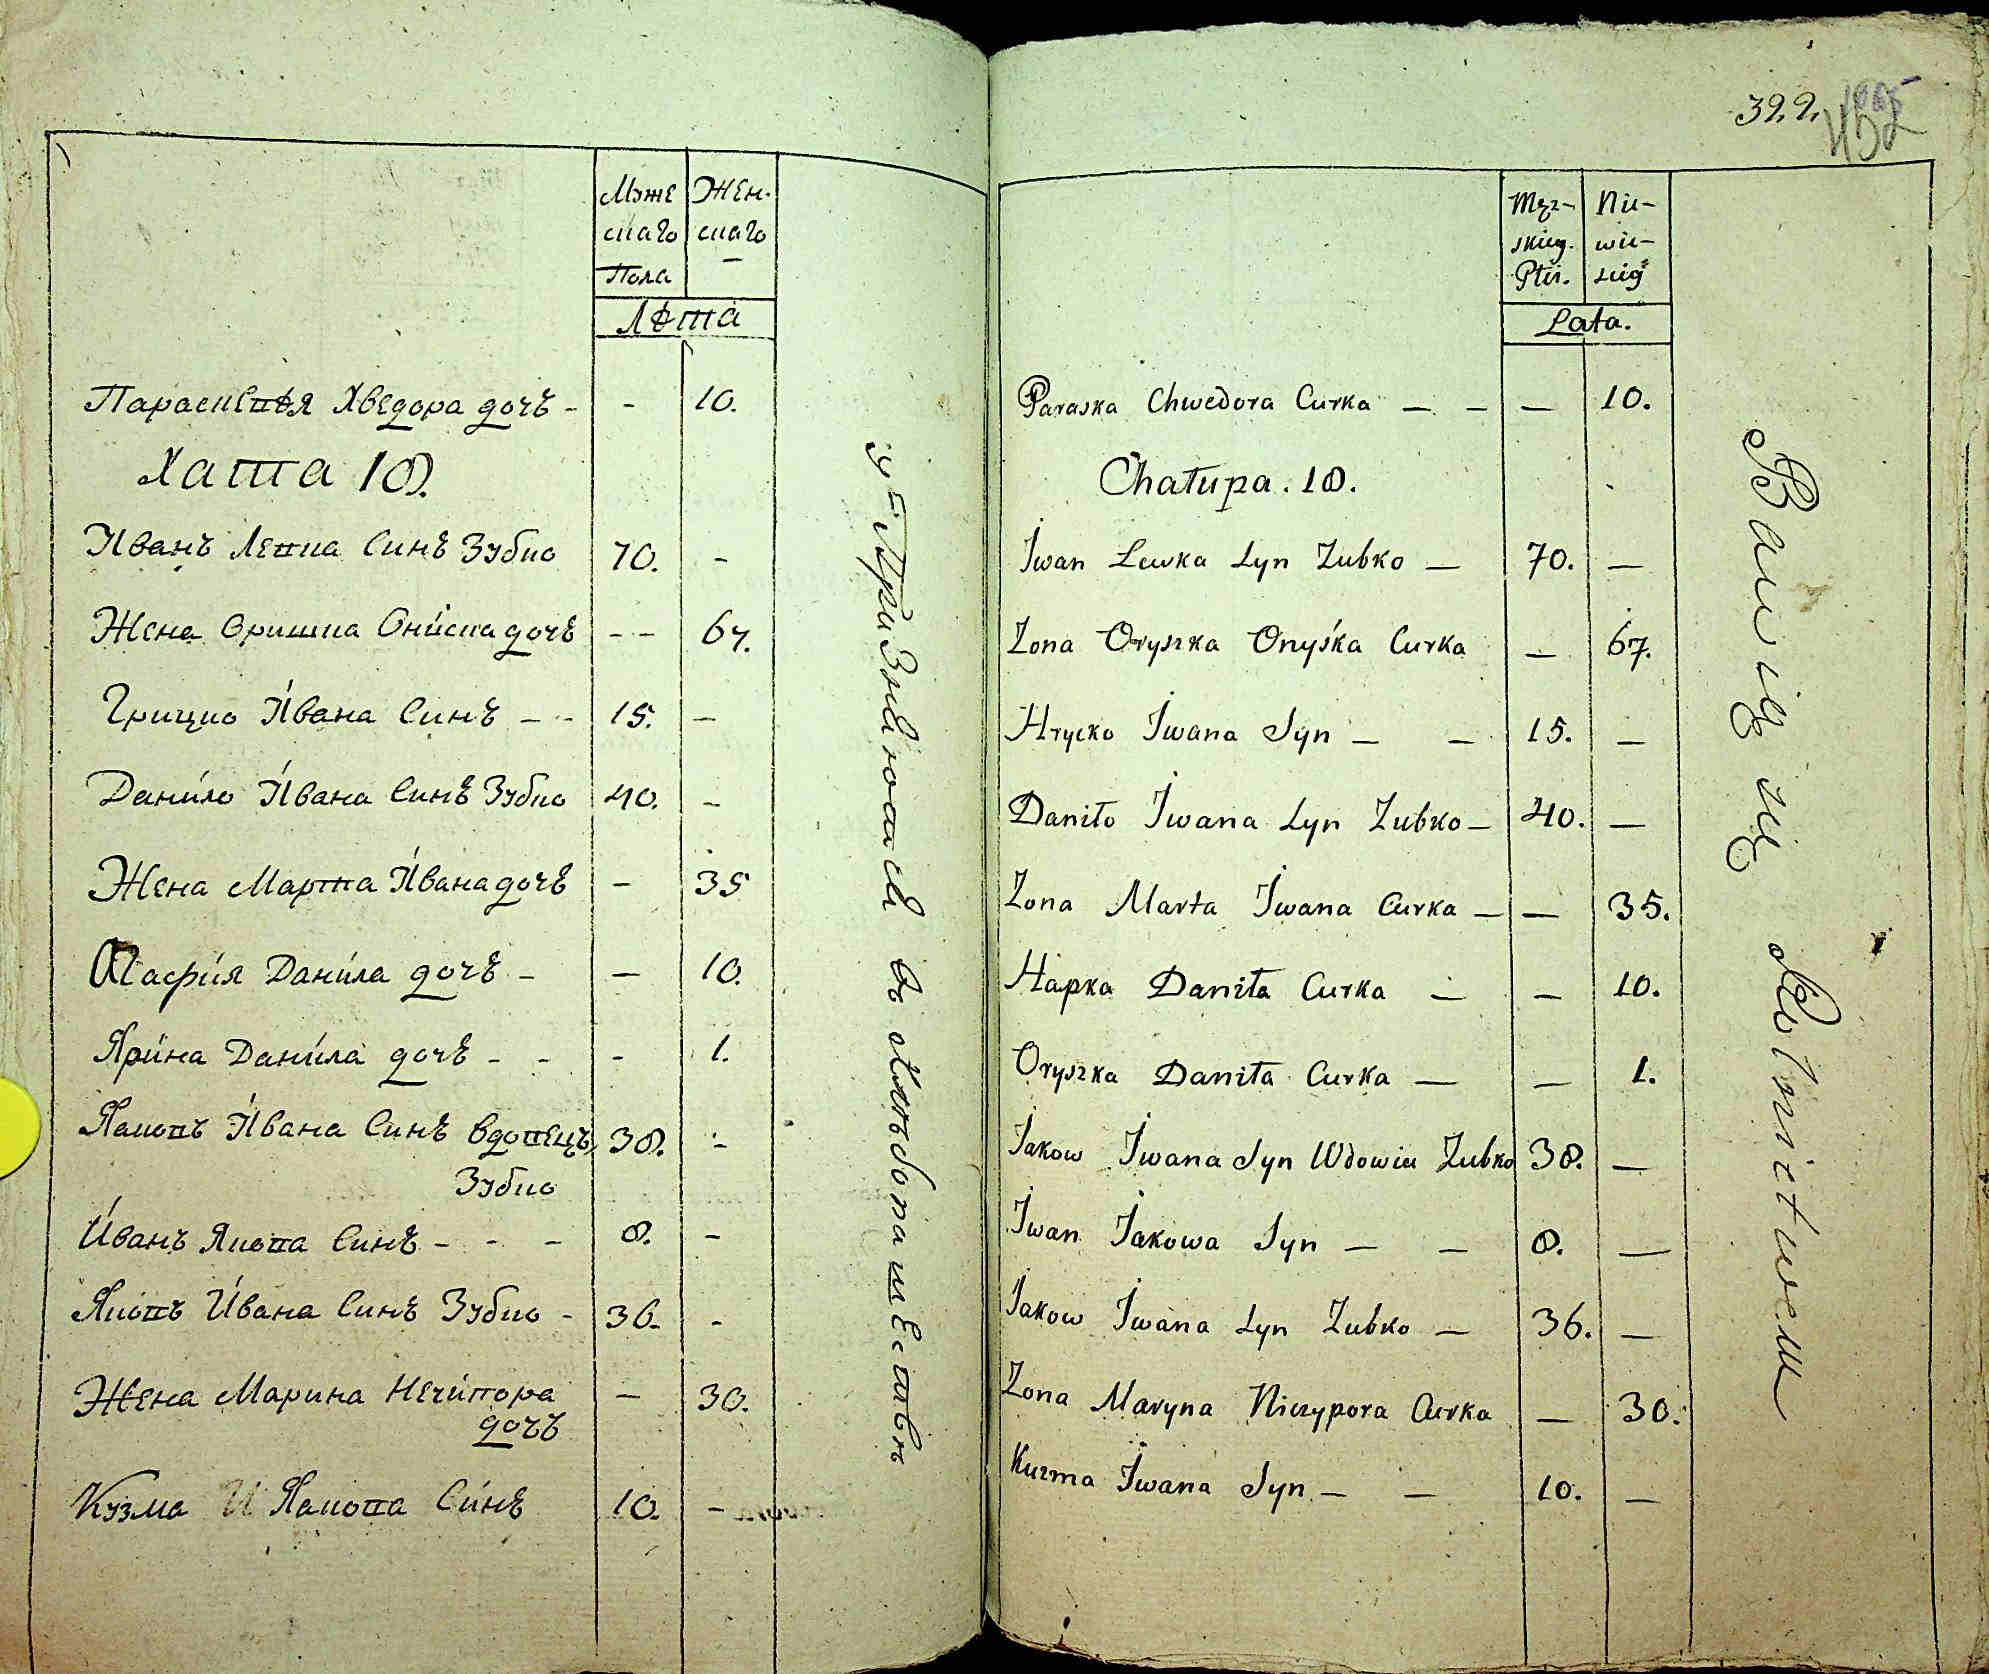 Мэже
скаго
Пола
Жен-
скаго
Лѣта
Параскевѣя Хведора дочъ - - 10.
Хата 18.
Иванъ Левка Синъ Зубко 70. -
Жена Оришка Ониска дочъ - - 67.
Грицко Ивана Синъ - - 15. -
Данило Ивана Синъ Зубко 40. -
Жена Марта Ивана дочъ - 35
Агафия Данила дочъ - - 10.
Ярина Данила дочъ - - - 1.
Яковъ Ивана Синъ вдовецъ 38. -
Зубко
Иванъ Якова Синъ - - - 8. -
Яковъ Ивана Синъ Зубко - 36. -
Жена Марина Нечипора - 30.
дочъ
Кузма Якова Синъ 10. -
въ хлѣбопашествѣ
322.
Męz-
skieg.
Płci.
Nie-
wie-
sieg
Lata.
Paraska Chwedora Curka — - — 10.
Chałupa. 18.
Iwan Lewka Syn Zubko — 70. —
Zona Oryszka Onyśka Curka — 67.
Hrycko Iwana Syn — — 15. —
Daniło Iwana Syn Zubko — 40. —
Zona Marta Iwana Curka — — 35.
Hapka Daniła Curka — — 10.
Oryszka Daniła Curka — — 1.
Iakow Iwana Syn Wdowiec Zubko 38. —
Iwan Iakowa Syn — — 8. —
Iakow Iwana Syn Zubko — 36. —
Zona Maryna Niczypora Curka — 30.
Kuzma Iwana Syn — — 10. —
Bawią się Rolnictwem